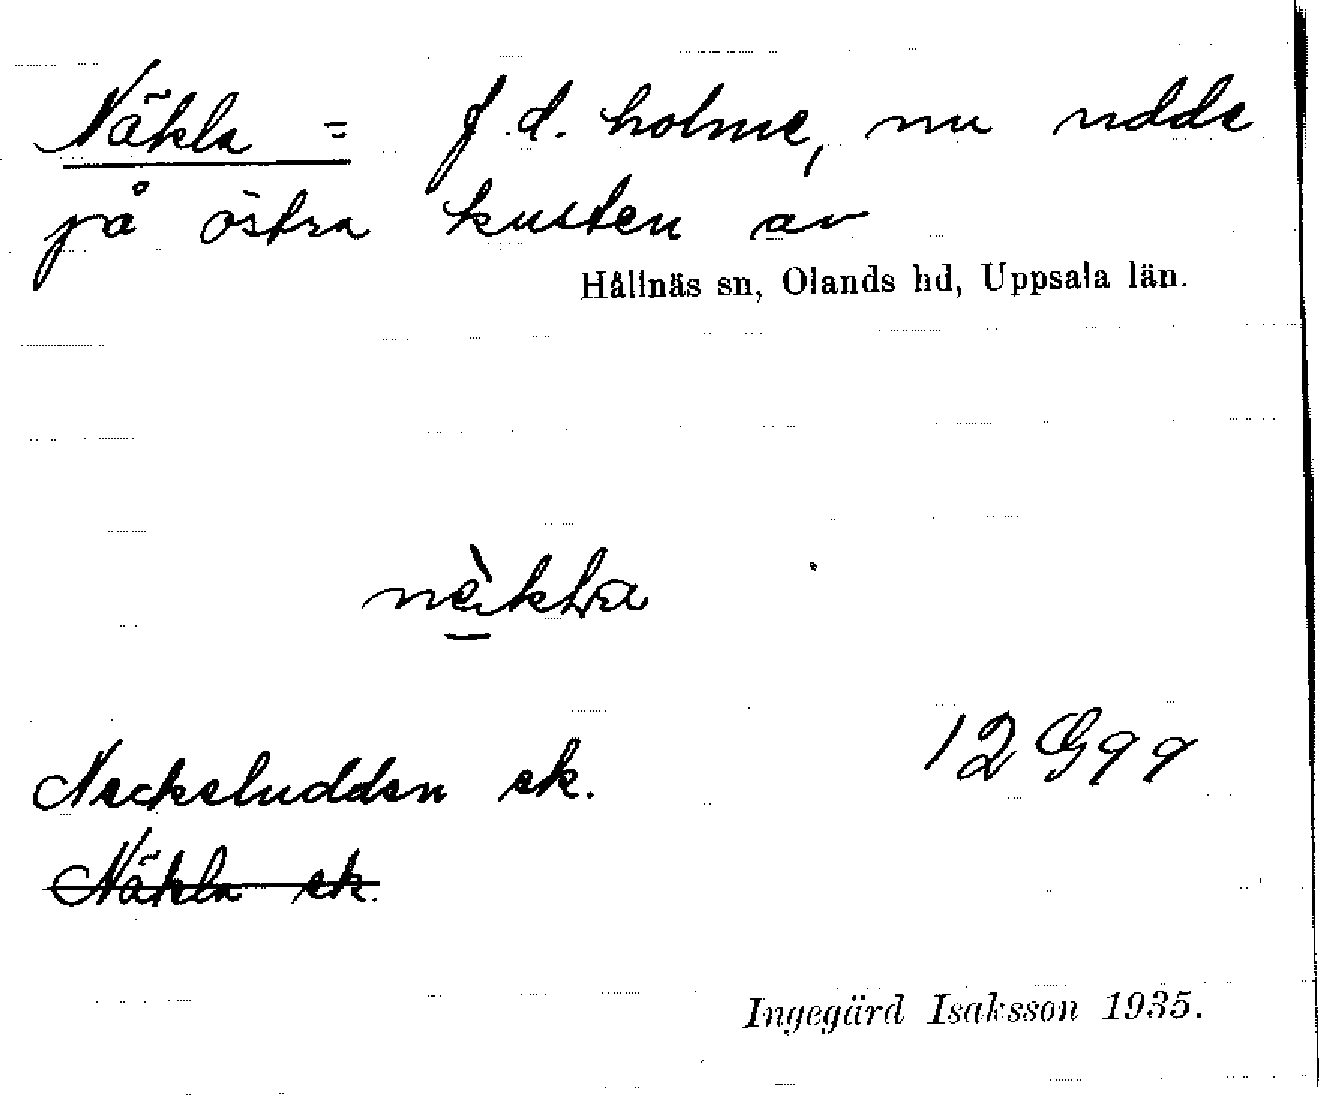 Näkla = f.d. holme, nu udde
på östra kusten av
Hållnäs sn, Olands hd, Uppsala län.
Neckeludden ek.
Näkla ek.
Ingegärd Isaksson 1935.